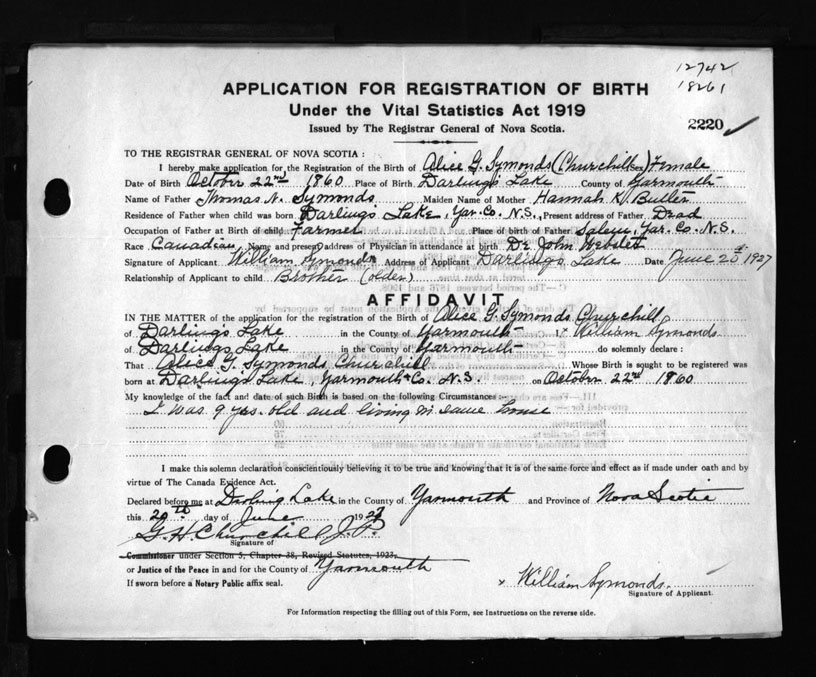 12742
18261
APPLICATION FOR REGISTRATION OF BIRTH
Under the Vital Statistics Act 1919
Issued by The Registrar General of Nova Scotia.
2220
TO THE REGISTRAR GENERAL OF NOVA SCOTIA:
I hereby make application for the Registration of the Birth of Alice G. Symonds (Churchill) Sex Female
Date of Birth October 22nd 1860 Place of Birth Darlings Lake County of Yarmouth
Name of Father Thomas N. Symonds Maiden Name of Mother Hannah K. Butler
Residence of Father when child was born Darlings Lake, Yar. Co. N.S. Present address of Father Dead
Occupation of Father at Birth of child Farmer Place of birth of Father Salem, Yar. Co. N.S.
Race Canadian Name and present address of Physician in attendance at birth Dr John
Signature of Applicant William Symonds Address of Applicant Darlings Lake Date June 20 1927
Relationship of Applicant to child Brother (older)
AFFIDAVIT
IN THE MATTER of the application for the registration of the Birth of Alice G. Symonds Churchill
of Darlings Lake in the County of Yarmouth I, William Symonds
of Darlings Lake in the County of Yarmouth do solemnly declare:
That Alice G. Symonds Churchill Whose Birth is sought to be registered was
born at Darlings Lake, Yarmouth Co. N.S. on October 22nd 1860
My knowledge of the fact and date of such Birth is based on the following Circumstances:-
I was 9 yrs. old and living in same house
I make this solemn declaration conscientiously believing it to be true and knowing that it is of the same force and effect as if made under oath and by
virtue of The Canada Evidence Act.
Declared before me at Darling Lake in the County of Yarmouth and Province of Nova Scotia
this 20th day of June 1927
G. H. Churchill J.P.
Signature of
Commissioner under Section 5, Chapter 38, Revised Statutes, 1923,
or Justice of the Peace in and for the County of Yarmouth
If sworn before a Notary Public affix seal.
x William Symonds
Signature of Applicant.
For Information respecting the filling out of this Form, see Instructions on the reverse side.